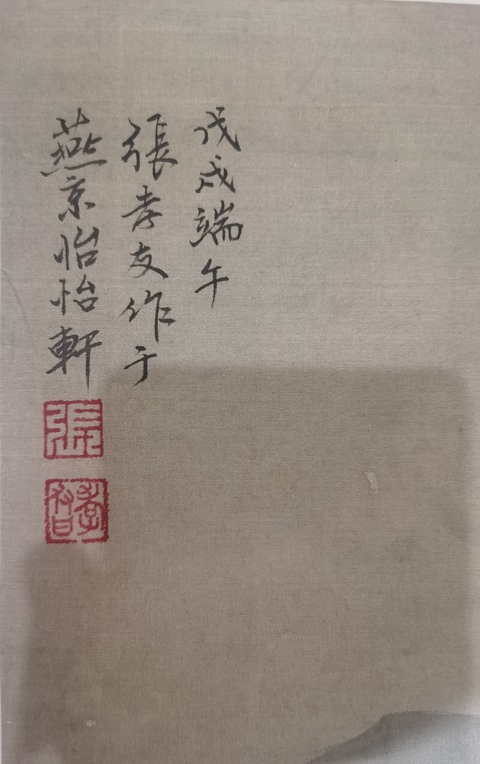 戊戌端午
張孝友作于
燕京怡怡軒
張
孝友